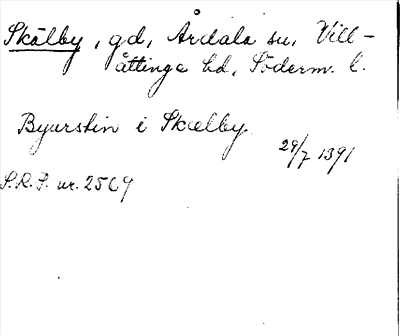 Skälby, gd, Årdala sn, Vill-
åttinge hd, Söderm. l.
Byurstin i Skælby.
29/7 1391
S.R.P. nr. 2569